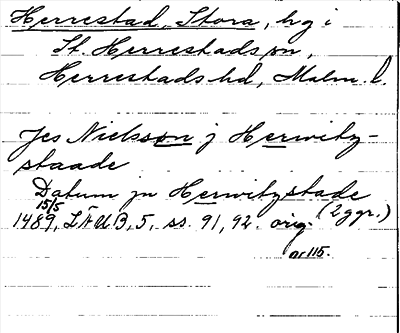 Herrestad, Stora, hg i
St. Herrestads sn,
Herrestads hd, Malm. l.
Jes Nielsson j Herwitz-
staade
Datum jn Herwitzstade
15/5 (2 ggr.)
1489, LÄUB, 5, ss. 91, 92. orig.
nr 115.